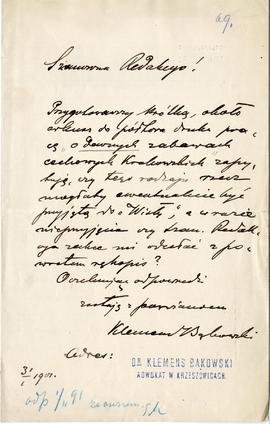 69.
Szanowna Redakcyo!
Przygotowawszy krótką, około
arkusz do półtora druku pra-
cę „o dawnych zabawach
cechowych Krakowskich" zapy-
tuję, czy tego rodzaju rzecz
mogłaby ewentualnie być
przyjętą do „Wisły", a w razie
nieprzyjęcia czy szan. Redak-
cya zechce mi odesłać z po-
wrotem rękopis?
Oczekując odpowiedzi
zostaję z poważaniem
Klemens Bąkowski
Adres:
DR. KLEMENS BĄKOWSKI
ADWOKAT W KRZESZOWICACH.
3/I 1901.
odp